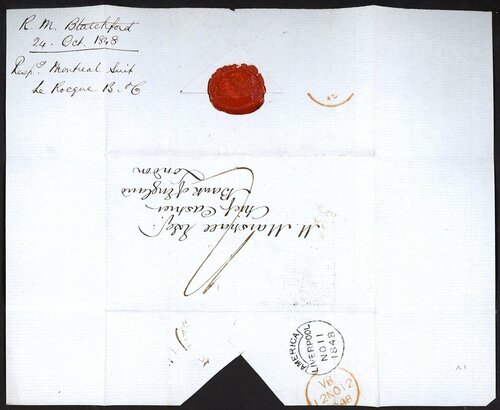 R. M. Blatchford
24. Oct. 1848
Resp.g Montreal Suit
La Rocque B. & C
M Marshall Esqr.
Chief Cashier
Bank of England
London
AMERICA
LIVERPOOL
NO 11
1848
12 NO 12
1848